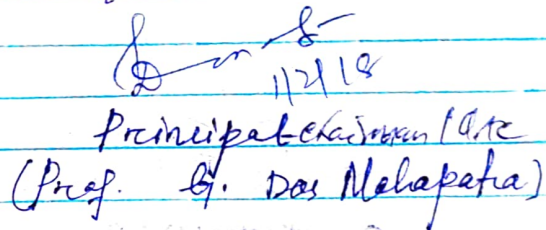 1/2/18
Principal chairman
(Prof. G. Das Mahapatra)